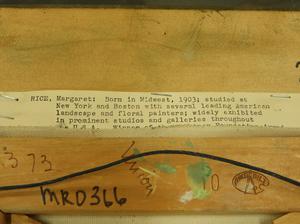 RICE, Margaret: Born in Midwest, 1903; studied at
New York and Boston with several leading American
landscape and floral painters; widely exhibited
in prominent studios and galleries throughout
U.S.A. Winner of
373
Union
0
MRD366